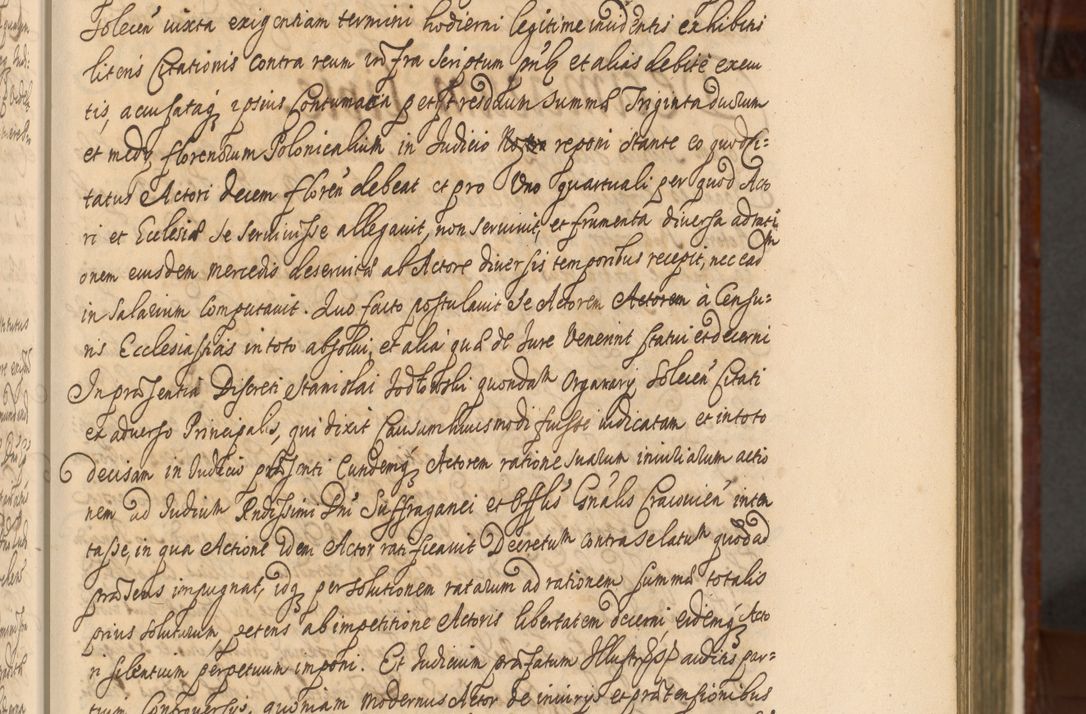 Solecen̄ iuxta exigentiam termini hodierni legitime incidentis exhibitis
literis Citationis contra reum infra scriptum p̄n̄s et alias debite execu
tis, accusataq ipsius Contumacia petit residuum summæ Triginta duorum
et medy florenorum Polonicalium in Judicio reponi stante eo quod ci=
tatus Actori decem floren̄ debeat et pro Uno quartuali per quod Acto
ri et Ecclesiæ se servivisse allegavit, non servivit, et frumenta diversa ad rati
onem eiusdem mercedis deservitæ ab Actore diversis temporibus recepit, nec eadm
in salarium computavit. Quo facto postulavit se Actorem Actorem à Censu=
ris Ecclesiasticis in toto absolvi, et alia quæ de Jure venerint statui et decerni
In præsentia Discreti Stanislai Jodlowski quondam Organary Solecen̄ Citati
ex adverso Principalis, qui dixit Causam huiusmodi fuisse iudicatam et in toto
decisam in Judicio præsenti Eundemq Actorem ratione suarum iniuriarum actio
nem ad Judicium Rndissimi Dn̄i Suffraganei et Offlis Gn̄alis Cracovien̄ inten
tasse, in qua Actione idem Actor ratificavit Decretum contra se latum quod ad
præsens impugnat, idq per solutionem ratarum ad rationem summæ totalis
prius solutarum petens ab impetitione Actoris libertatem decerni eidemq Acto
ri silentium perpetuum imponi. Et Judicium præfatum auditis par-
tium Controversys, quoniam modernus Actor de iniurys et prætensionibus